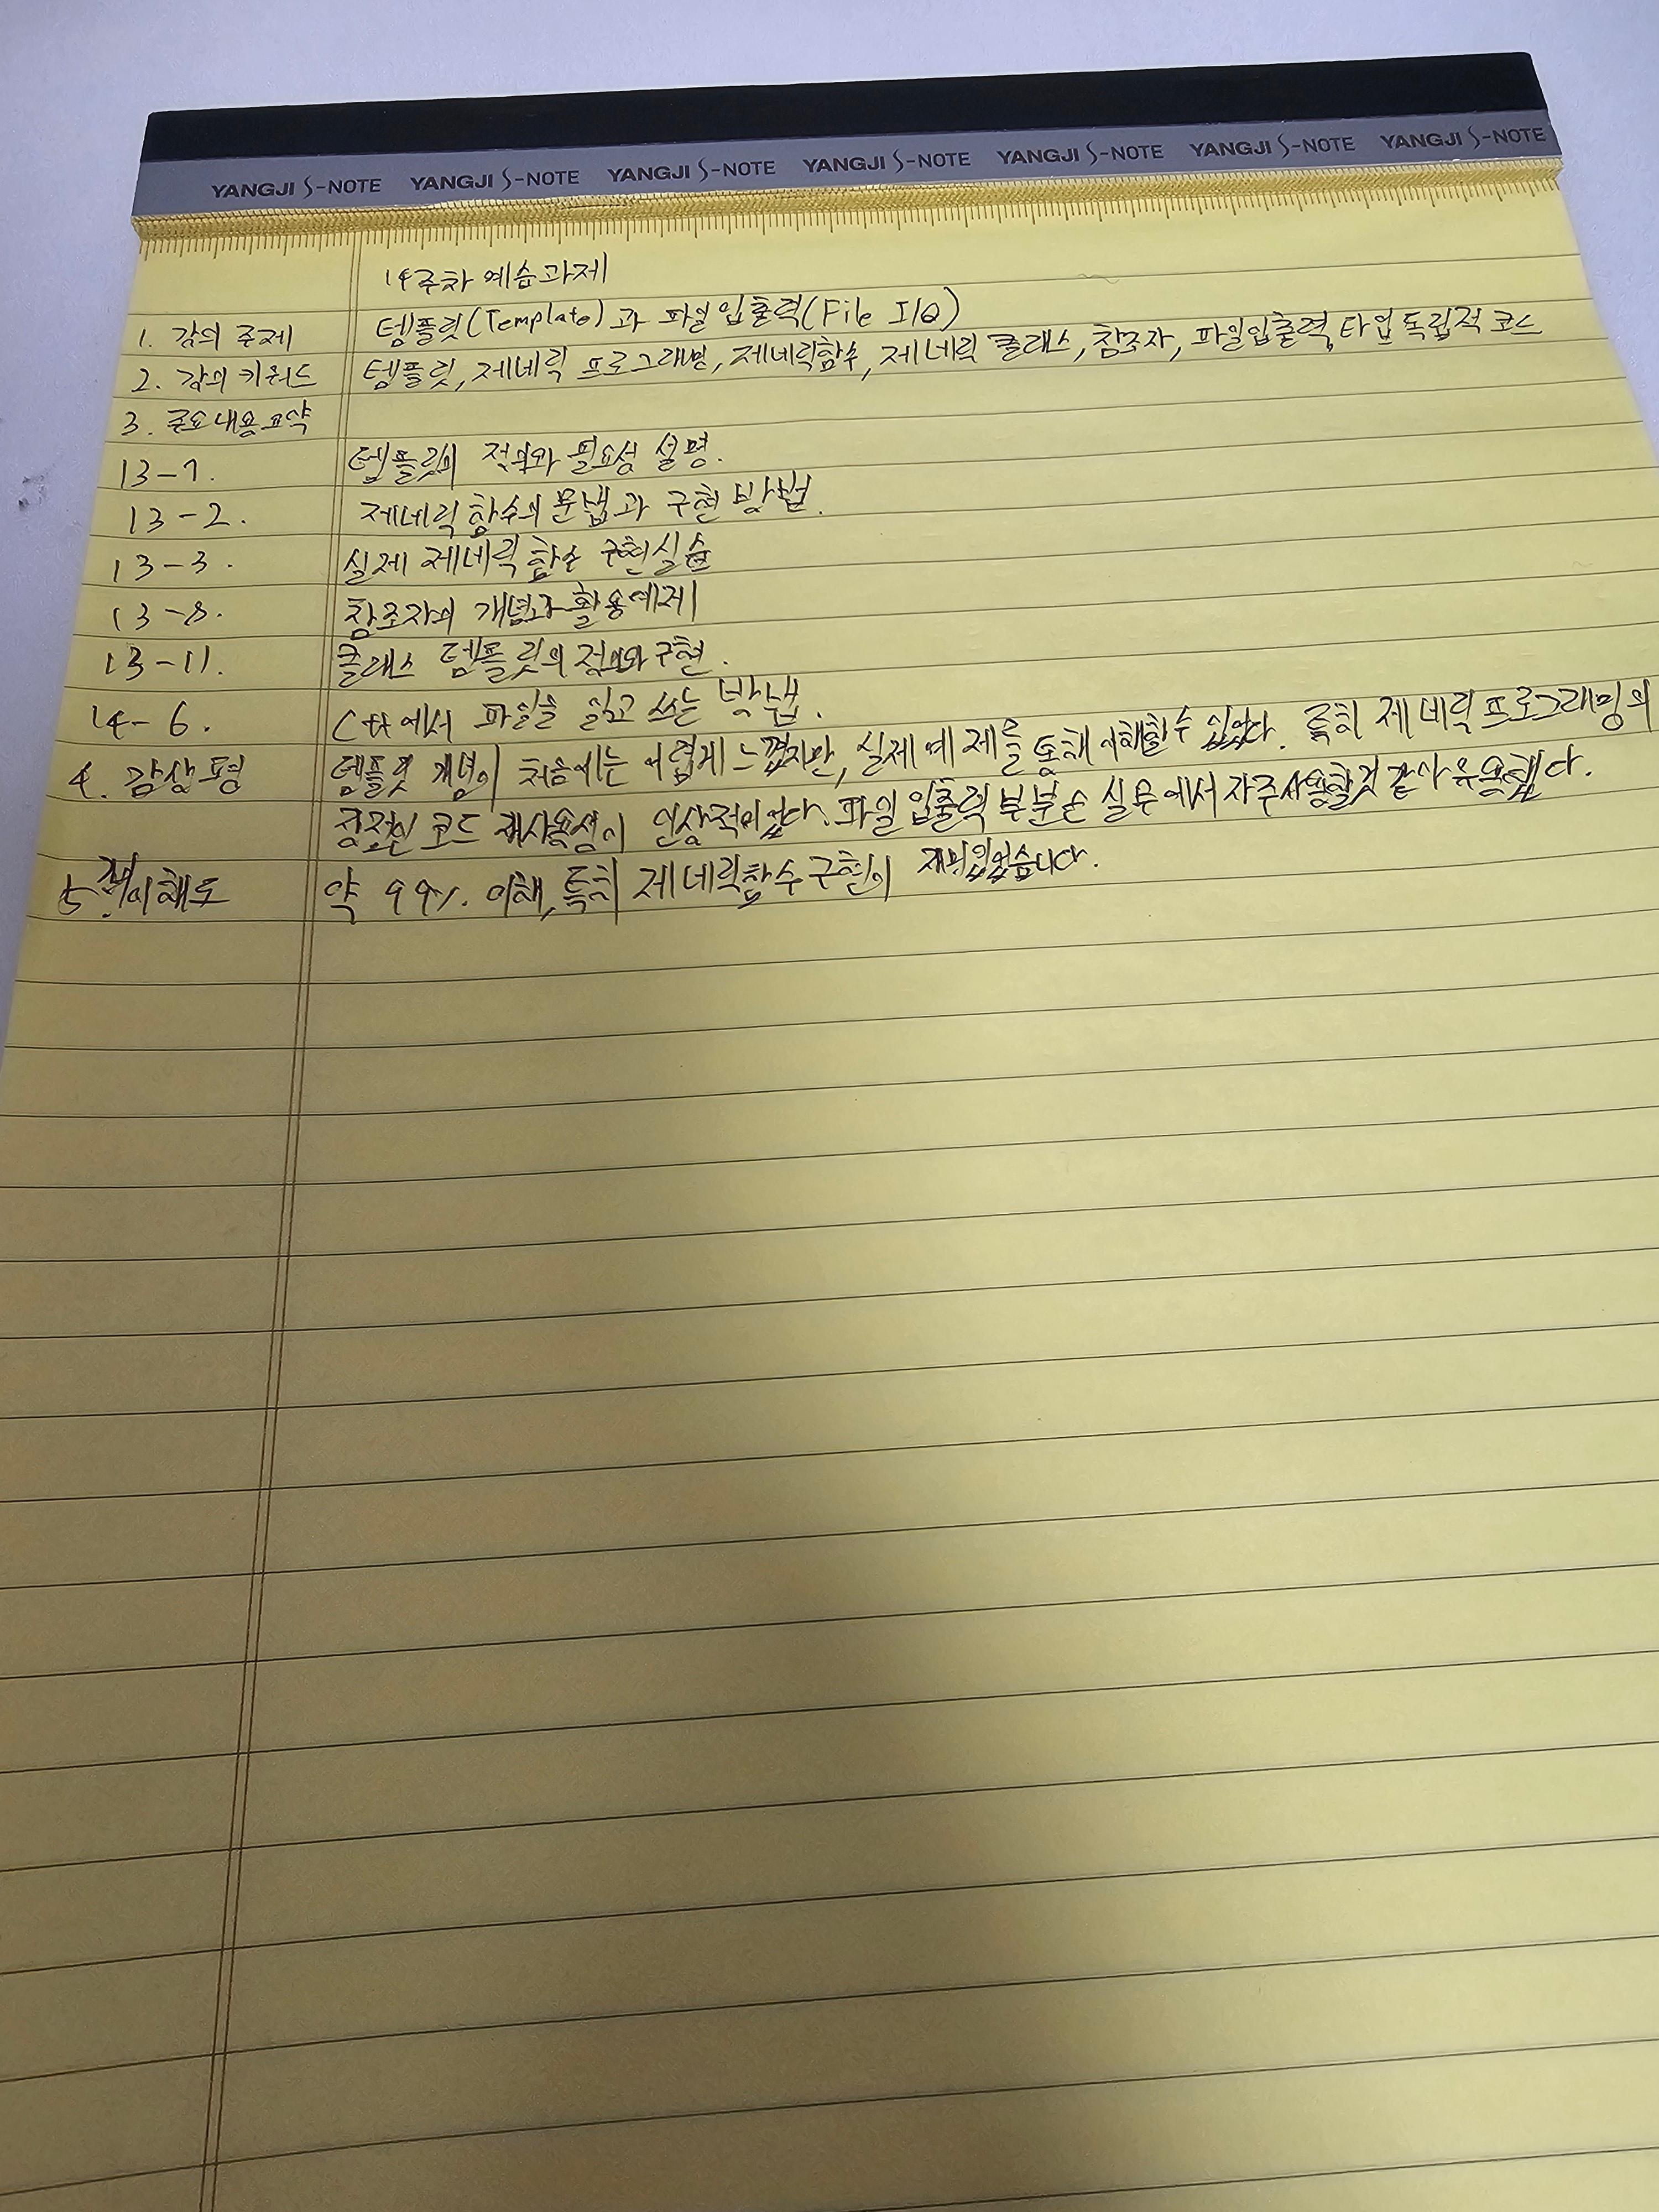 YANGJI S-NOTE YANGJI S-NOTE YANGJI S-NOTE YANGJI S-NOTE YANGJI S-NOTE YANGJI S-NOTE YANGJI S-NOTE
14주차 예습과제
1. 강의 주제 템플릿(Template)과 파일입출력(File I/O)
2. 강의 키워드 템플릿, 제네릭 프로그래밍, 제네릭함수, 제네릭 클래스, 참조자, 파일입출력, 타입 독립적 코드
3. 주요내용요약
13-1. 템플릿의 정의와 필요성 설명.
13-2. 제네릭 함수의 문법과 구현 방법.
13-3. 실제 제네릭 함수 구현실습
13-8. 참조자의 개념과 활용예제
13-11. 클래스 템플릿의 정의와 구현.
14-6. C++에서 파일을 읽고 쓰는 방법.
4. 감상평 템플릿 개념이 처음에는 어렵게 느꼈지만, 실제 예제를 통해 이해할 수 있었다. 특히 제네릭프로그래밍의
장점인 코드 재사용성이 인상적이었다. 파일입출력 부분은 실무에서 자주사용할것 같아 유용했다.
5. 이해도 약 99%. 이해, 특히 제네릭함수구현이 재미있었습니다.